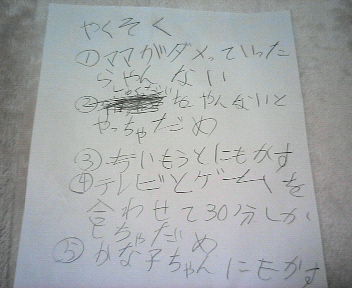 やくそく
①ママがダメっていった
らやんない
②しゅくだいをやんないと
やっちゃだめ
③いもうとにもかす
④テレビとゲームを
合わせて30分しか
しちゃだめ
⑤かな子ちゃんにもかす